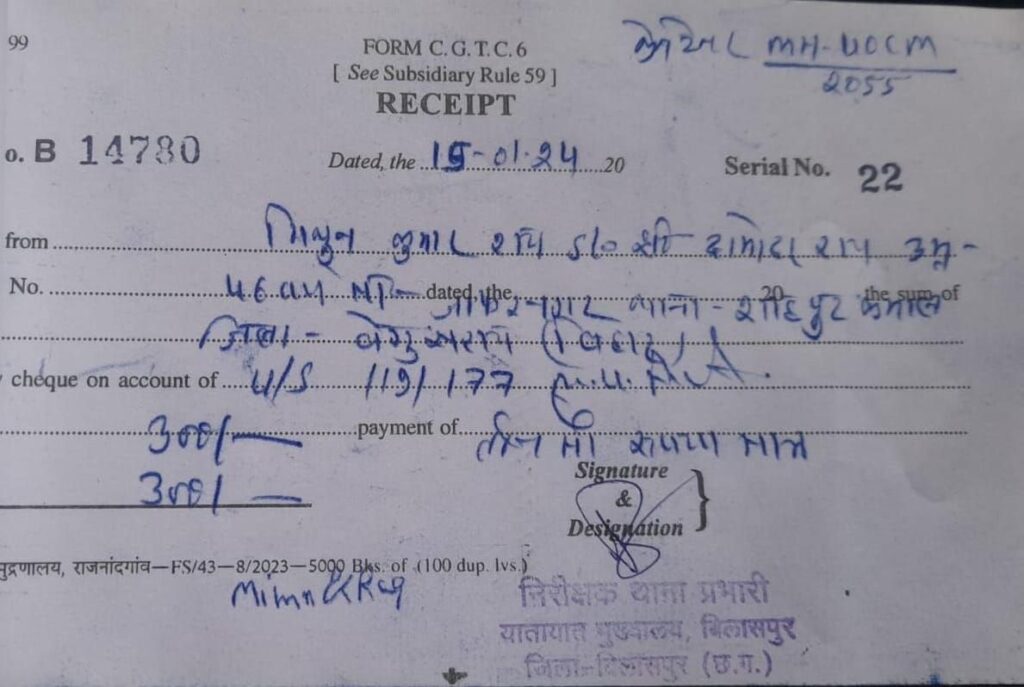 99
FORM C.G.T.C.6
[ See Subsidiary Rule 59 ]
RECEIPT
MH-40CM
2055
o. B 14780
Dated, the 15-01-24 20
Serial No. 22
from मिथुन कुमार राय S/o श्री दामोदर राय उम्र-
No. 46 वर्ष dated, the 20 the sum of
जाफर नगर थाना - साहेबपुर कमाल
जिला - बेगुसराय (बिहार)
cheque on account of U/S 119/177 M.V. Act.
300/- payment of तीन सौ रुपया मात्र
300/-
Signature
&
Designation
मुद्रणालय, राजनांदगांव—FS/43—8/2023—5000 Bks. of (100 dup. lvs.)
निरीक्षक थाना प्रभारी
यातायात मुख्यालय, बिलासपुर
जिला-बिलासपुर (छ.ग.)